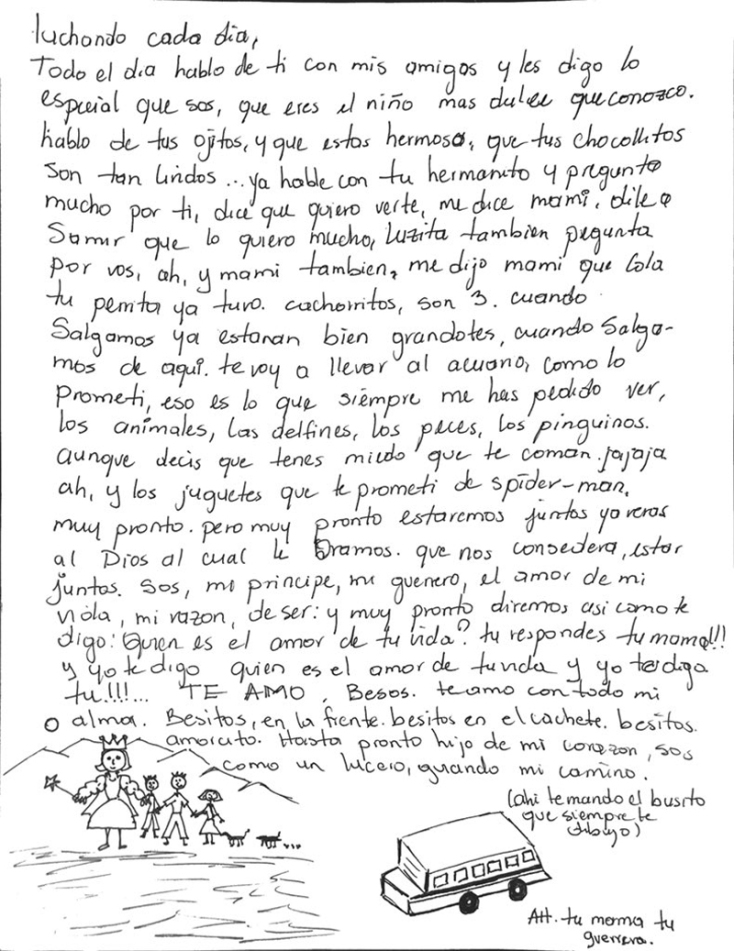 luchando cada dia,
Todo el dia hablo de ti con mis amigos y les digo lo
especial que sos, que eres el niño mas dulce que conozco.
hablo de tus ojitos, y que estas hermoso, que tus chocollitos
son tan lindos ... ya hable con tu hermanito y pregunto
mucho por ti, dice que quiero verte, me dice mami, dile a
Samir que lo quiero mucho, luzita tambien pegunta
por vos, ah, y mami tambien, me dijo mami que Lola
tu perrita ya tuvo. cachorritos, son 3. cuando
Salgamos ya estaran bien grandotes, cuando Salga-
mos de aqui. te voy a llevar al acuario, como lo
Prometi, eso es lo que siempre me has pedido ver,
los animales, las delfines, los peces, los pinguinos.
aunque decis que tenes miedo que te coman. jajaja
ah, y los juguetes que te prometi de spider-man,
muy pronto. pero muy pronto estaremos juntos ya veras
al Dios al cual le Oramos. que nos consedera, estar
juntos. Sos, mi principe, mi guerrero, el amor de mi
vida, mi razon, de ser: y muy pronto diremos asi como te
digo: Quien es el amor de tu vida? tu respondes tu mama!!!
y yo te digo quien es el amor de tu vida y yo te diga
tu!!!... TE AMO, Besos. te amo con todo mi
alma. Besitos, en la frente. besitos en el cachete. besitos.
amorcito. Hasta pronto hijo de mi corazon, sos
como un lucero, guiando mi camino.
(ahi te mando el busito
que siempre te
dibujo)
Att. tu mama tu
guerrera.